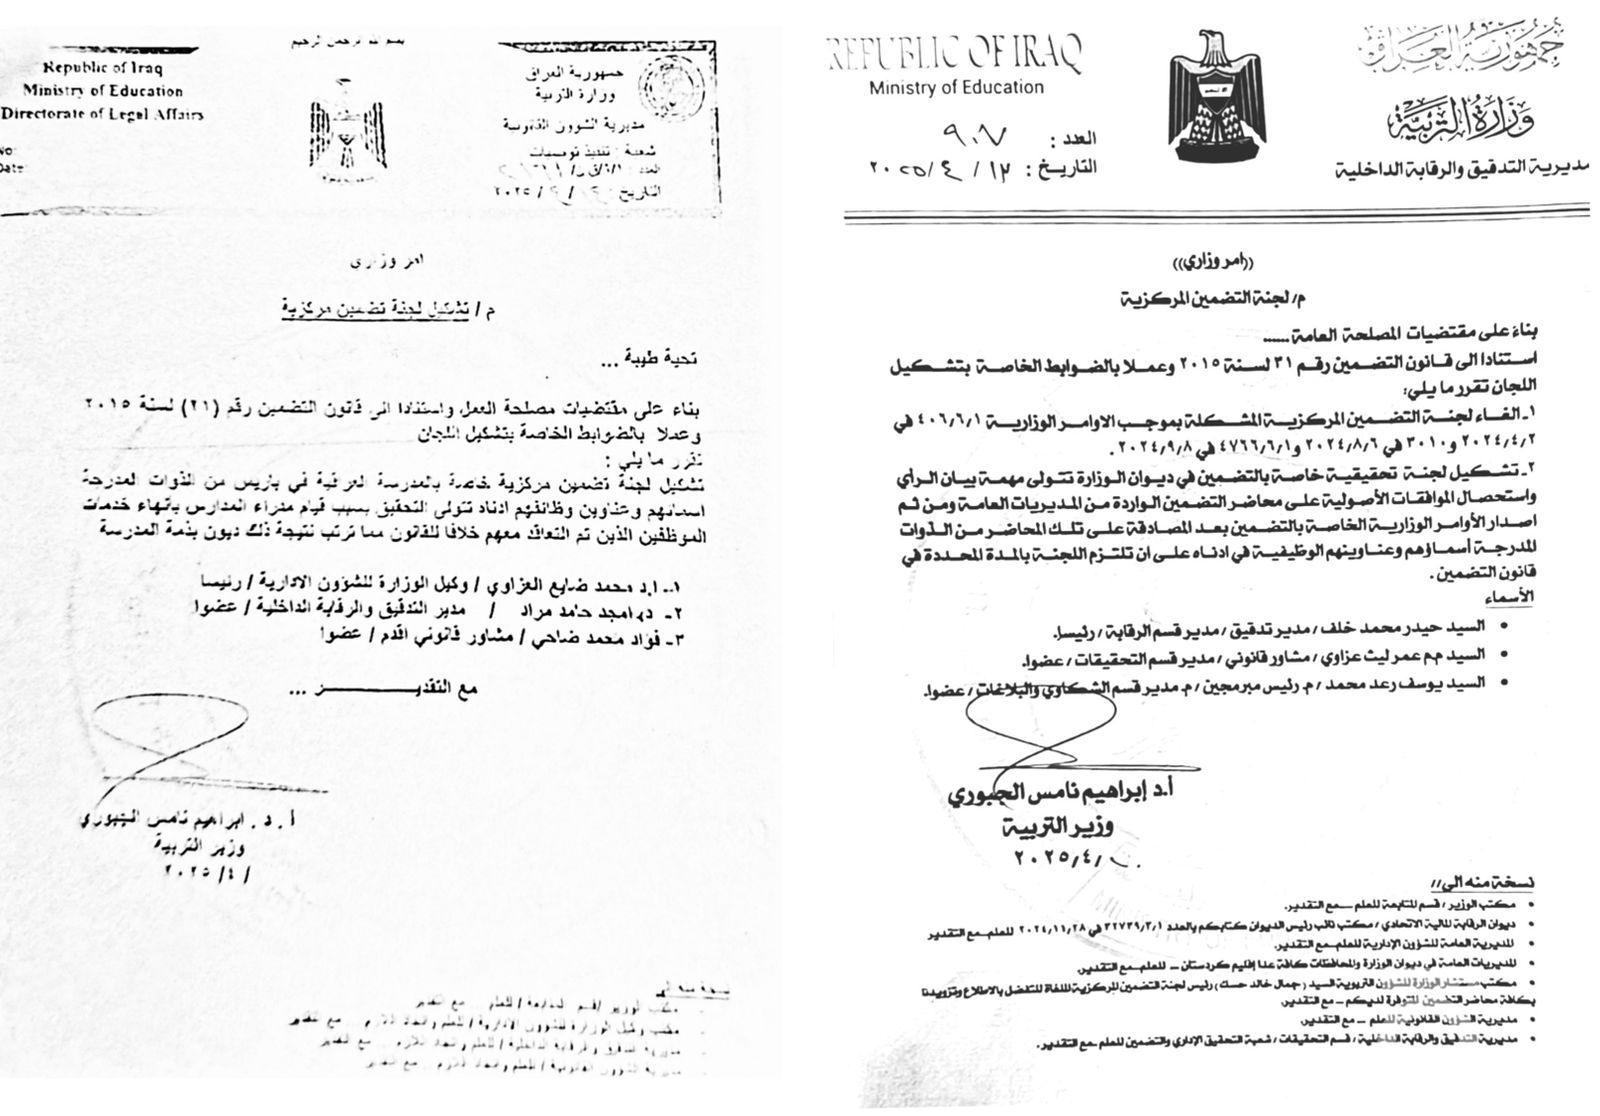 بسم الله الرحمن الرحيم
Republic of Iraq
Ministry of Education
Directorate of Legal Affairs
No:
Date:
جمهورية العراق
وزارة التربية
مديرية الشؤون القانونية
شعبة : تنفيذ توصيات
العدد :
التاريخ : / / ٢٠٢٥
امر وزاري
م / تشكيل لجنة تضمين مركزية
تحية طيبة ...
بناء على مقتضيات مصلحة العمل واستنادا الى قانون التضمين رقم (٣١) لسنة ٢٠١٥
وعملا بالضوابط الخاصة بتشكيل اللجان
تقرر ما يلي :
تشكيل لجنة تضمين مركزية خاصة بالمدرسة العراقية في باريس من الذوات المدرجة
اسمائهم وعناوين وظائفهم ادناه تتولى التحقيق بسبب قيام مدراء المدارس بأنهاء خدمات
الموظفين الذين تم التعاقد معهم خلافا للقانون مما ترتب نتيجة ذلك ديون بذمة المدرسة
١- ا.د محمد ضايع العزاوي / وكيل الوزارة للشؤون الادارية / رئيسا
٢- د. امجد حامد مراد / مدير التدقيق والرقابة الداخلية / عضوا
٣- فؤاد محمد ضاحي / مشاور قانوني اقدم / عضوا
مع التقديــــــــــر ...
أ . د . ابراهيم نامس الجبوري
وزير التربية
/ ٤ / ٢٠٢٥
نسخة منه الى
مكتب الوزير /قسم المتابعة / للعلم .. مع التقدير
مكتب وكيل الوزارة للشؤون الادارية / للعلم واتخاذ اللازم .. مع التقدير
مديرية التدقيق والرقابة الداخلية / للعلم واتخاذ اللازم .. مع التقدير
مديرية الشؤون القانونية / للعلم واتخاذ اللازم .. مع التقدير
REPUBLIC OF IRAQ
Ministry of Education
جمهورية العراق
وزارة التربية
مديرية التدقيق والرقابة الداخلية
العدد : ٩٠٧
التاريخ : ١٢ / ٤ / ٢٠٢٥
((امر وزاري))
م/ لجنة التضمين المركزية
بناءً على مقتضيات المصلحة العامة......
استنادا الى قانون التضمين رقم ٣١ لسنة ٢٠١٥ وعملا بالضوابط الخاصة بتشكيل
اللجان تقرر ما يلي:
١- الغاء لجنة التضمين المركزية المشكلة بموجب الاوامر الوزارية ٤٠٦/٦/١ في
٢٠٢٤/٤/٢ و٣٠١٠ في ٢٠٢٤/٨/٦ و٤٧٦٦/٦/١ في ٢٠٢٤/٩/٨ .
٢- تشكيل لجنة تحقيقية خاصة بالتضمين في ديوان الوزارة تتولى مهمة بيان الرأي
واستحصال الموافقات الأصولية على محاضر التضمين الواردة من المديريات العامة ومن ثم
اصدار الأوامر الوزارية الخاصة بالتضمين بعد المصادقة على تلك المحاضر من الذوات
المدرجة أسماؤهم وعناوينهم الوظيفية في ادناه على ان تلتزم اللجنة بالمدة المحددة في
قانون التضمين .
الأسماء
• السيد حيدر محمد خلف / مدير تدقيق / مدير قسم الرقابة / رئيسا.
• السيد م.م عمر ليث عزاوي / مشاور قانوني / مدير قسم التحقيقات / عضوا.
• السيد يوسف رعد محمد / م. رئيس مبرمجين / م. مدير قسم الشكاوي والبلاغات / عضوا.
أ.د إبراهيم نامس الجبوري
وزير التربية
٢٠٢٥/٤/
نسخة منه الى//
• مكتب الوزير / قسم المتابعة للعلم – مع التقدير.
• ديوان الرقابة المالية الاتحادي / مكتب نائب رئيس الديوان كتابكم بالعدد ٣٢٧٣٩/٣/١ في ٢٠٢٤/١١/٢٨ للعلم – مع التقدير
• المديرية العامة للشؤون الإدارية للعلم – مع التقدير.
• المديريات العامة في ديوان الوزارة والمحافظات كافة عدا إقليم كردستان – للعلم – مع التقدير.
• مكتب مستشار الوزارة للشؤون التربوية السيد ( جمال خالد حسك ) رئيس لجنة التضمين المركزية الملغاة للتفضل بالاطلاع وتزويدنا
بكافة محاضر التضمين المتوفرة لديكم – مع التقدير.
• مديرية الشؤون القانونية للعلم – مع التقدير.
• مديرية التدقيق والرقابة الداخلية / قسم التحقيقات / شعبة التحقيق الإداري والتضمين للعلم – مع التقدير.